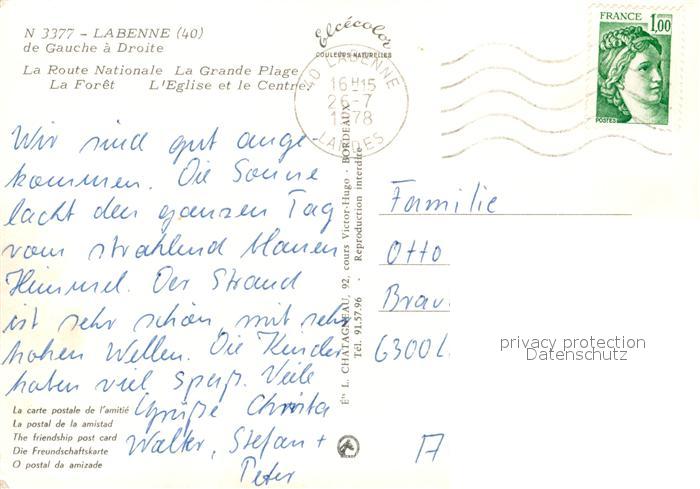 N 3377 - LABENNE (40)
de Gauche à Droite
La Route Nationale La Grande Plage
La Forêt L'Eglise et le Centre
Elcécolor
COULEURS NATURELLES
40 LABENNE
16H15
26-7
1978
LANDES
FRANCE 1,00
POSTES
Wir sind gut ange-
kommen. Die Sonne
lacht den ganzen Tag
vom strahlend blauen
Himmel. Der Strand
ist sehr schön, mit sehr
hohen Wellen. Die Kinder
haben viel Spaß. Viele
Grüße Christa
Walter, Stefan +
Peter
Ets L. CHATAGNEAU, 92, cours Victor-Hugo - BORDEAUX
Tél. 91.57.96 - Reproduction interdite
Familie
Otto
Brau
6300 L
privacy protection
Datenschutz
La carte postale de l'amitié
La postal de la amistad
The friendship post card
Die Freundschaftskarte
O postal da amizade